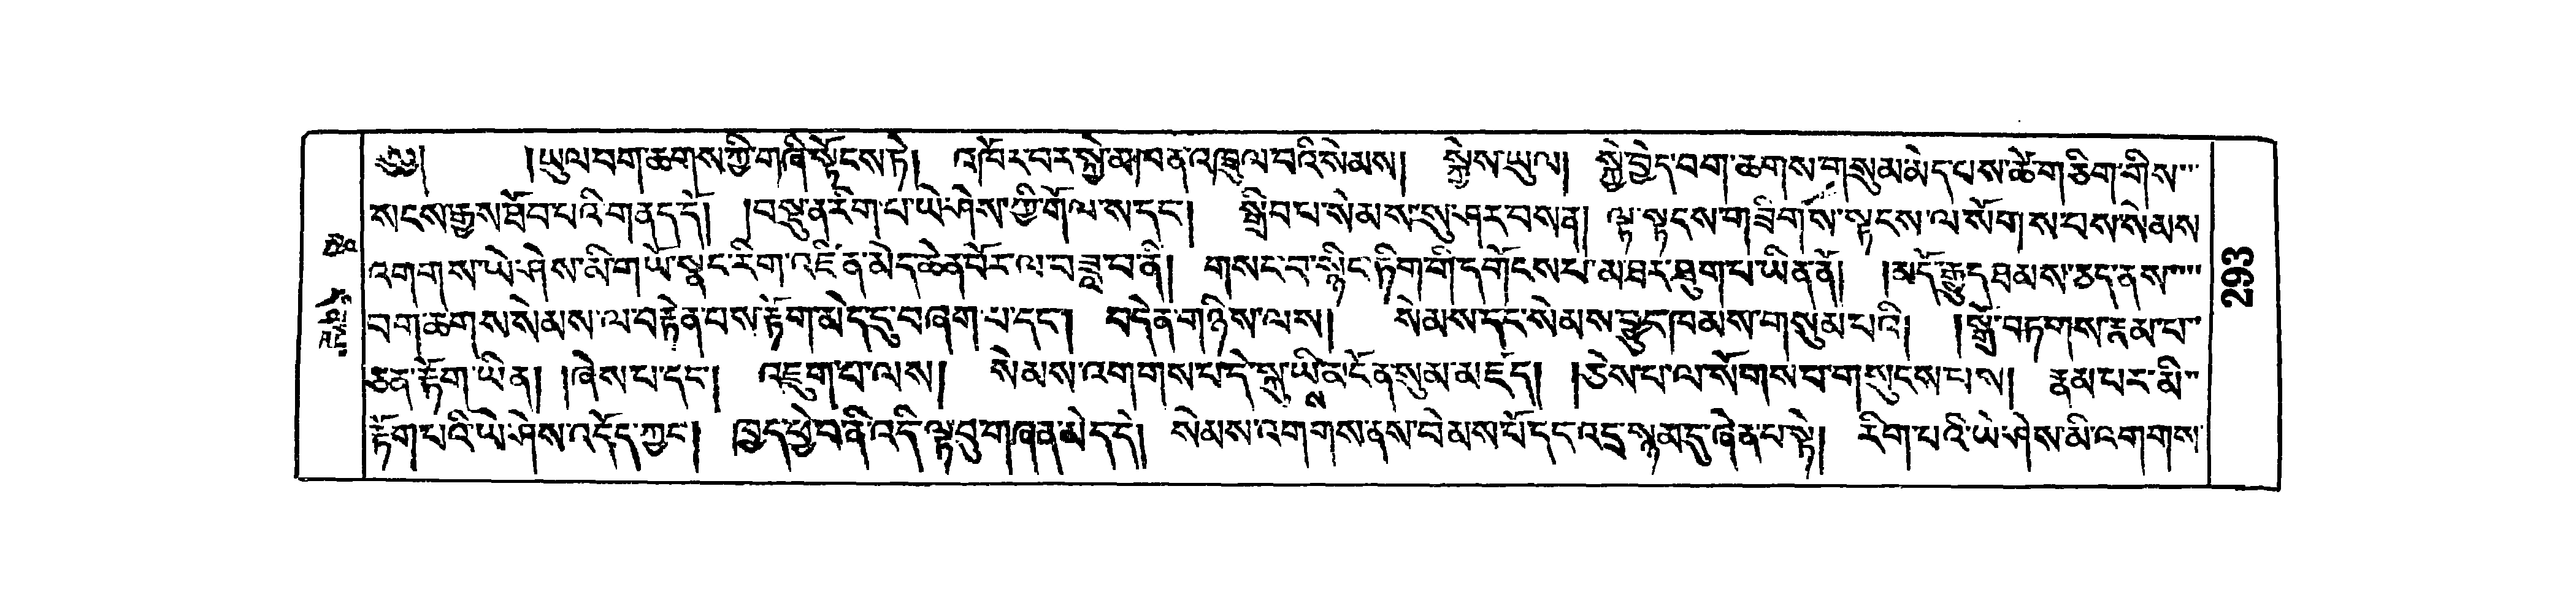 ༄༅། །ཡུལ་བག་ཆགས་ཀྱི་གཞི་སྟོངས་ཏེ། འཁོར་བར་སྐྱེ་མཁན་འཁྲུལ་བའི་སེམས། སྐྱེས་ཡུལ། སྐྱེ་བྱེད་བག་ཆགས་གསུམ་མེད་པས་ཚེ་གཅིག་གིས
སངས་རྒྱས་ཐོབ་པའི་གནད་དོ། །བསྡུ་ན་རིག་པ་ཡེ་ཤེས་ཀྱི་གོལ་ས་དང་། སྒྲིབ་པ་སེམས་སུ་ཤར་བས་ན། ལྟ་སྟངས་གཟིགས་སྟངས་ལ་སོགས་པས་སེམས
འགགས་ཡེ་ཤེས་མི་གཡོ་སྣང་རིག་འཛིན་མེད་ཆེན་པོར་ལ་བཟླ་བ་ནི། གསང་བ་སྙིང་ཏིག་གི་དགོངས་པ་མཐར་ཐུག་པ་ཡིན་ནོ། །མདོ་རྒྱུད་ཐམས་ཅད་ནས
བག་ཆགས་སེམས་ལ་བརྟེན་པས་རྟོག་མེད་དུ་བཞག་པ་དང་། བདེན་གཉིས་ལས། སེམས་དང་སེམས་བྱུང་ཁམས་གསུམ་པའི། །སྒྲོ་བཏགས་རྣམ་པ
ཅན་རྟོག་ཡིན། །ཞེས་པ་དང་། འཇུག་པ་ལས། སེམས་འགགས་པ་དེ་སྐུ་ཡིས་མངོན་སུམ་མཛད། །ཅེས་པ་ལ་སོགས་པ་གསུངས་པས། རྣམ་པར་མི
རྟོག་པའི་ཡེ་ཤེས་འདོད་ཀྱང་། ཁྱད་ཕྱེ་བ་ནི་འདི་ལྟ་བུ་གཞན་མེད་དེ། སེམས་འགགས་ནས་བེམས་པོ་དང་འདྲ་སྙམ་དུ་ཞེན་པ་སྟེ། རིག་པའི་ཡེ་ཤེས་མི་འགགས